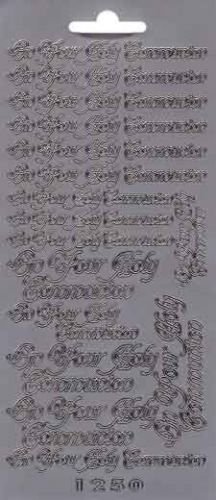 On Your Holy Communion
On Your Holy Communion
On Your Holy Communion
On Your Holy Communion
On Your Holy Communion
On Your Holy Communion
On Your Holy Communion
On Your Holy Communion
On Your Holy Communion
On Your Holy
Communion
On Your Holy
Communion
On Your Holy
Communion
On Your Holy
Communion
On Your Holy
Communion
On Your Holy
Communion
On Your Holy Communion
1250